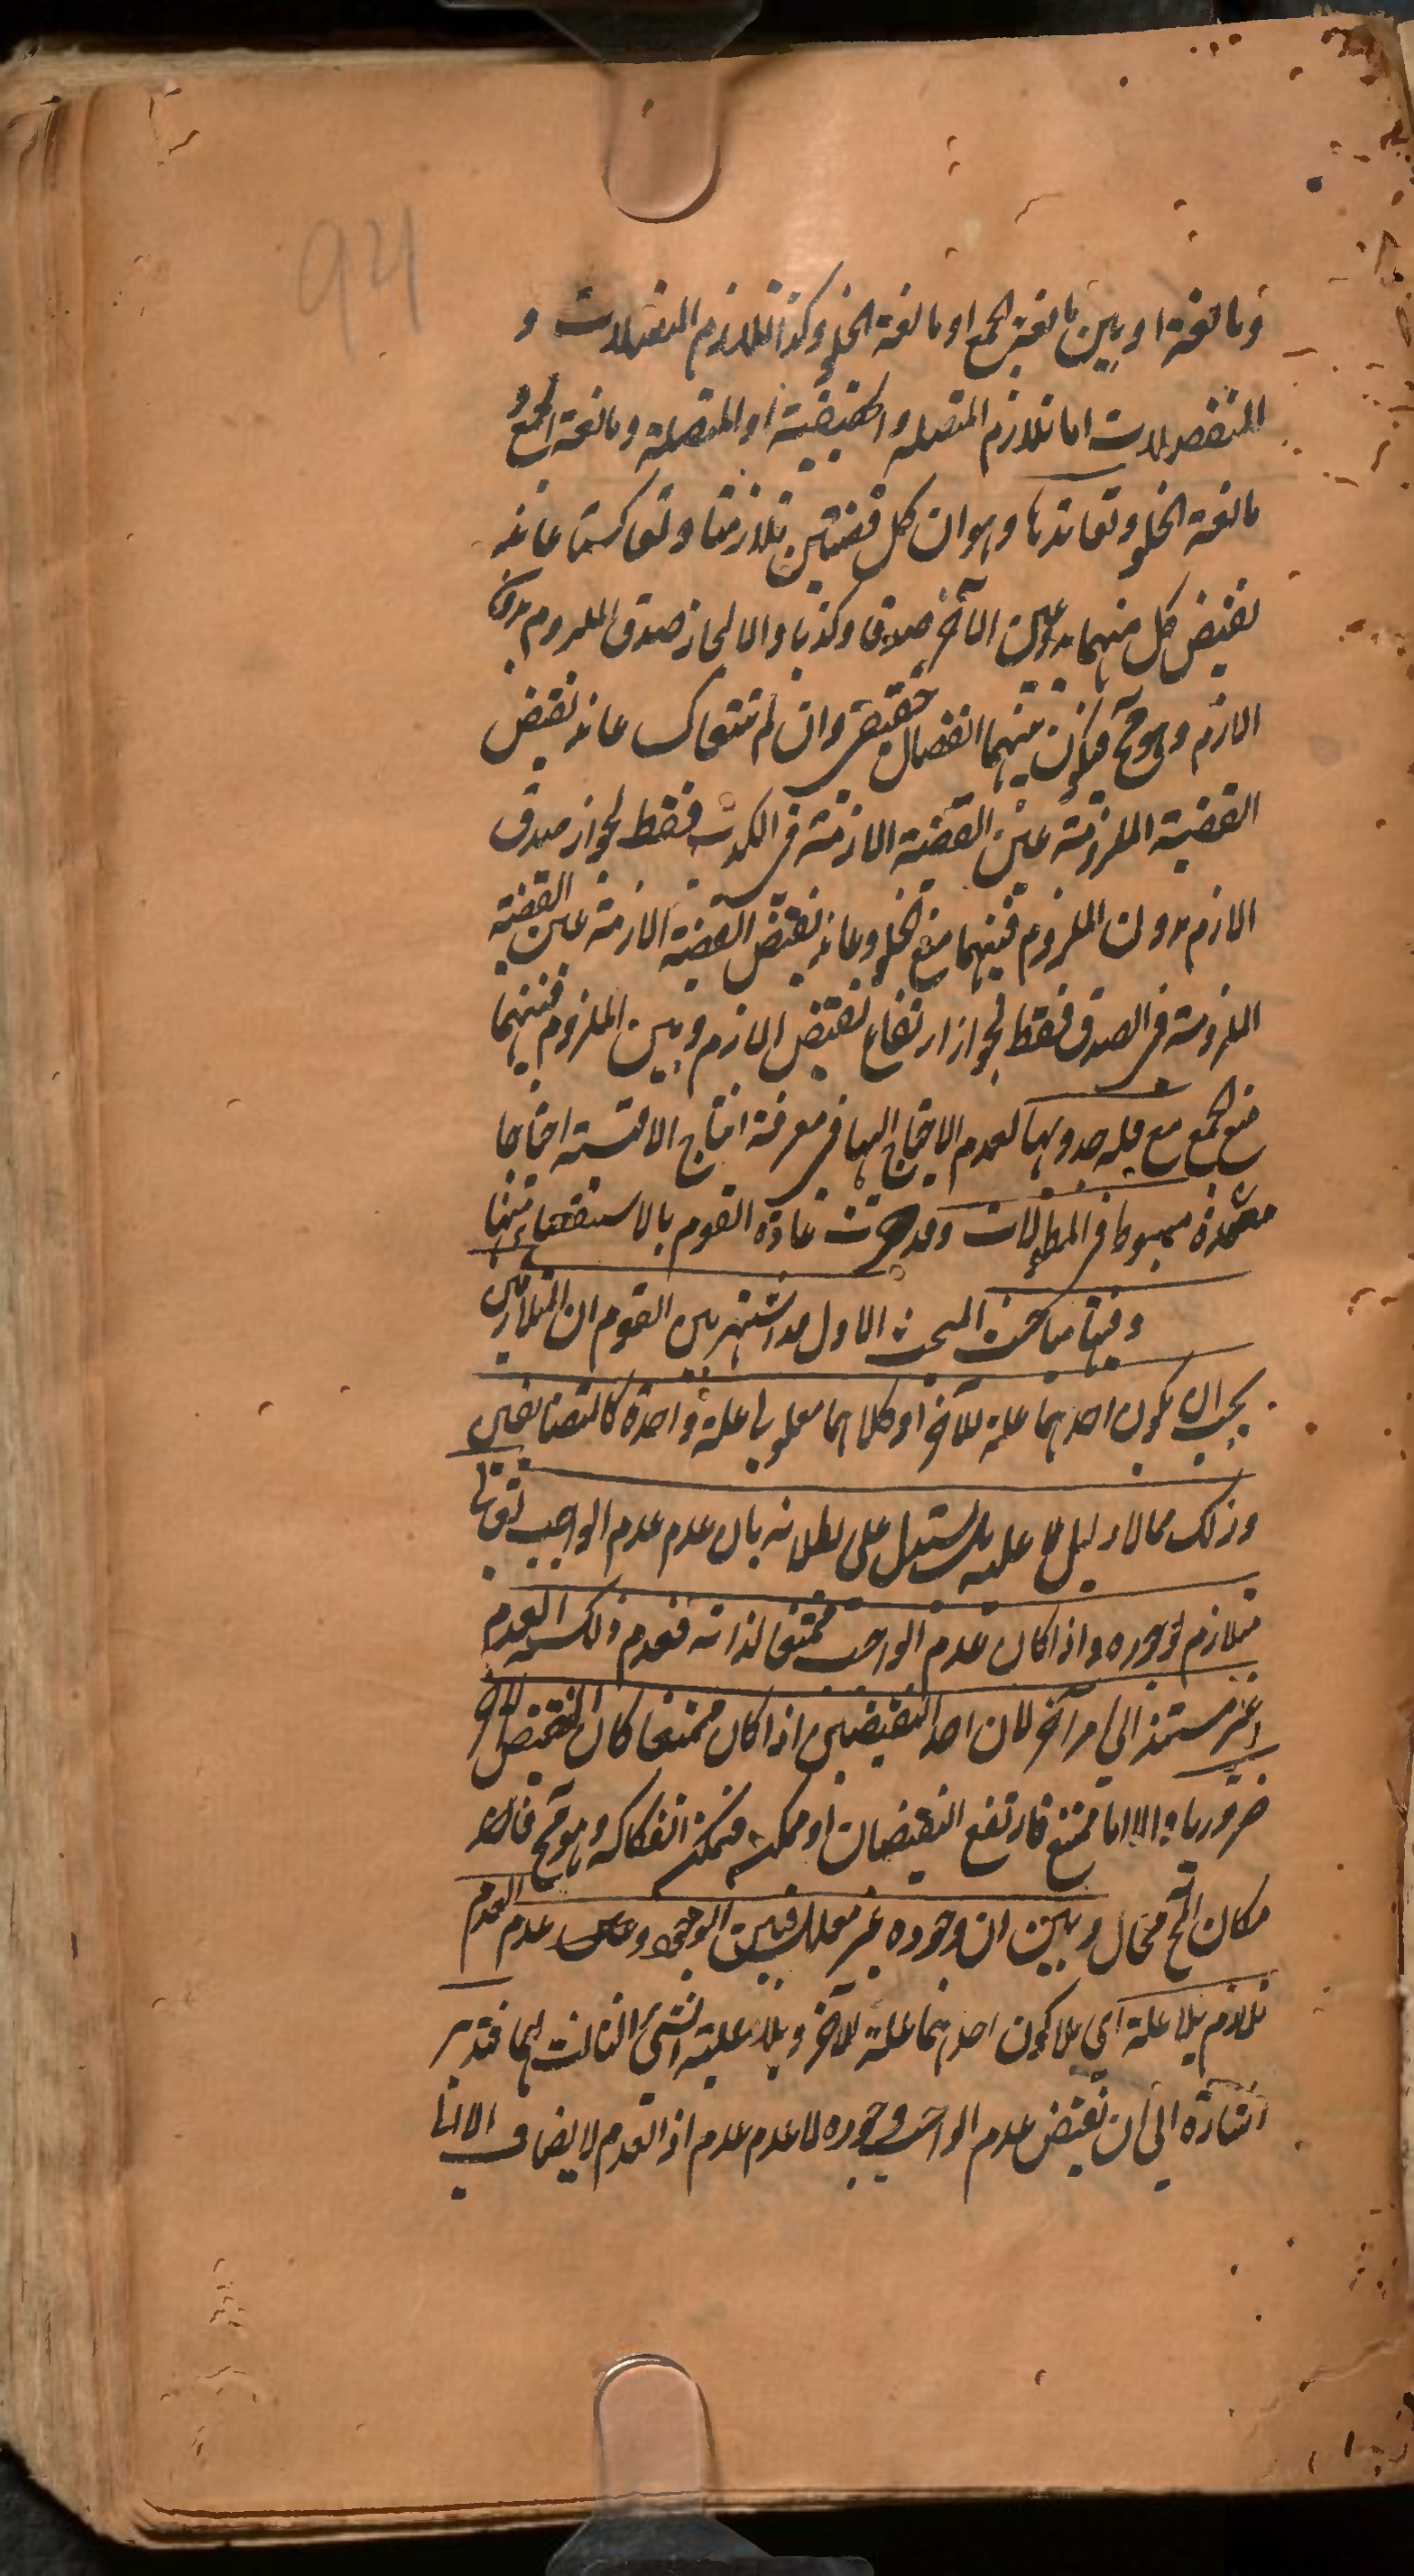 94
ومانعة او بين مانعة الجمع او مانعة الخلو وكذا تلازم المتصلات و
المنفصلات اما تلازم المتصلة والحقيقية او المتصلة ومانعة الجمع و
مانعة الخلو وتعاندها وهو ان كل قضيتين تلازمتا وتعاكستا عاند
نقيض كل منهما عين الآخر صدقا وكذبا والا لجاز صدق الملزوم بدون
اللازم وهو مح فيكون بينهما انفصال حقيقي وان لم تتعاكس عاند نقيض
القضية الملزومة عين القضية اللازمة في الكذب فقط لجواز صدق
اللازم بدون الملزوم فبينهما منع الخلو وعاند نقيض القضية اللازمة عين القضية
الملزومة في الصدق فقط لجواز ارتفاع نقيض اللازم وعين الملزوم فبينهما
منع الجمع مع قلة جدويها لعدم الاحتياج اليها في معرفة انتاج الاقيسة احتياجا
معتمدة مبسوط في المطولات وقد جرت عادة القوم بالاستقصاء منها
وفيها مباحث المبحث الاول قد اشتهر بين القوم ان المتلازمين
يجب ان يكون احدهما علة للآخر او كلاهما معلولي علة واحدة كالمتضايفين
وذلك مما لا دليل عليه بل يستدل على بطلانه بان عدم عدم الواجب تعالى
متلازم لوجوده واذا كان عدم الواجب ممتنعا لذاته فعدم ذلك العدم
غير مستند الى امر آخر لان احد النقيضين اذا كان ممتنعا كان النقيض الآخر
ضروريا والا اما ممتنع فارتفع النقيضان او ممكن فيمكن انفكاكه وهو مح
مكان المح محال وبين ان وجوده غير معلل فبين الوجود وعدم العدم
تلازم بلا علة اي بلا كون احدهما علة للآخر وبلا علية الشئ الثالث لهما فتدبر
اشارة الى ان نقيض عدم الواجب وجوده لا عدم عدم اذ العدم لا يضاف الا الى